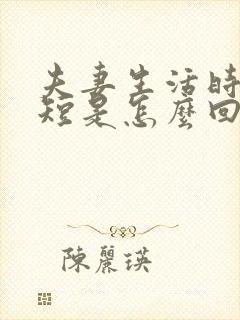 夫妻生活時
短是怎麼回
陳麗瑛